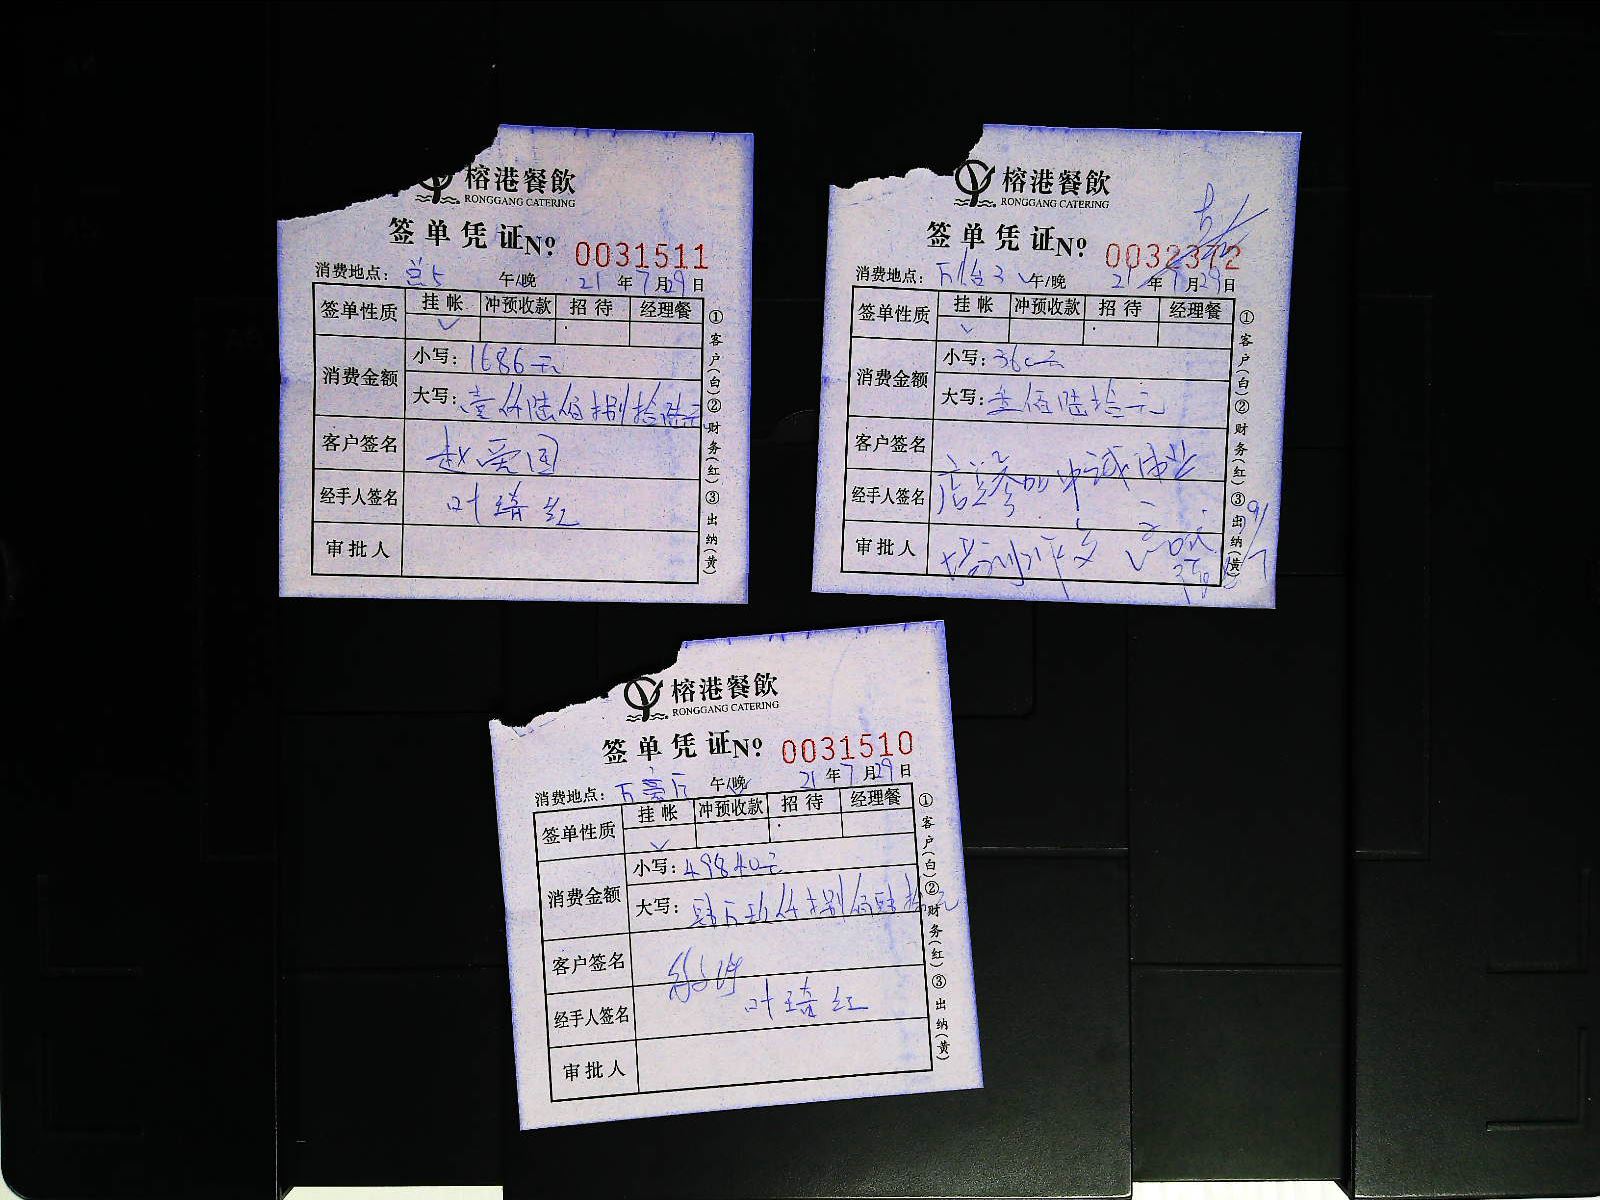 榕港餐飲
RONGGANG CATERING
签单凭证 No 0031511
消费地点: 总5 午/晚 21年7月29日
签单性质 挂帐 冲预收款 招待 经理餐
消费金额
小写: 1686元
大写: 壹仟陆佰捌拾陆元
客户签名 赵爱国
经手人签名 叶琦红
审批人
①客户(白)②财务(红)③出纳(黄)
榕港餐飲
RONGGANG CATERING
签单凭证 No 0032372
消费地点: 午/晚 21年7月29日
签单性质 挂帐 冲预收款 招待 经理餐
消费金额
小写: 360元
大写: 叁佰陆拾元
客户签名
经手人签名
审批人
①客户(白)②财务(红)③出纳(黄)
榕港餐飲
RONGGANG CATERING
签单凭证 No 0031510
消费地点: 午/晚 21年7月29日
签单性质 挂帐 冲预收款 招待 经理餐
消费金额
小写: 49840元
大写: 肆万玖仟捌佰肆拾元
客户签名
经手人签名 叶琦红
审批人
①客户(白)②财务(红)③出纳(黄)